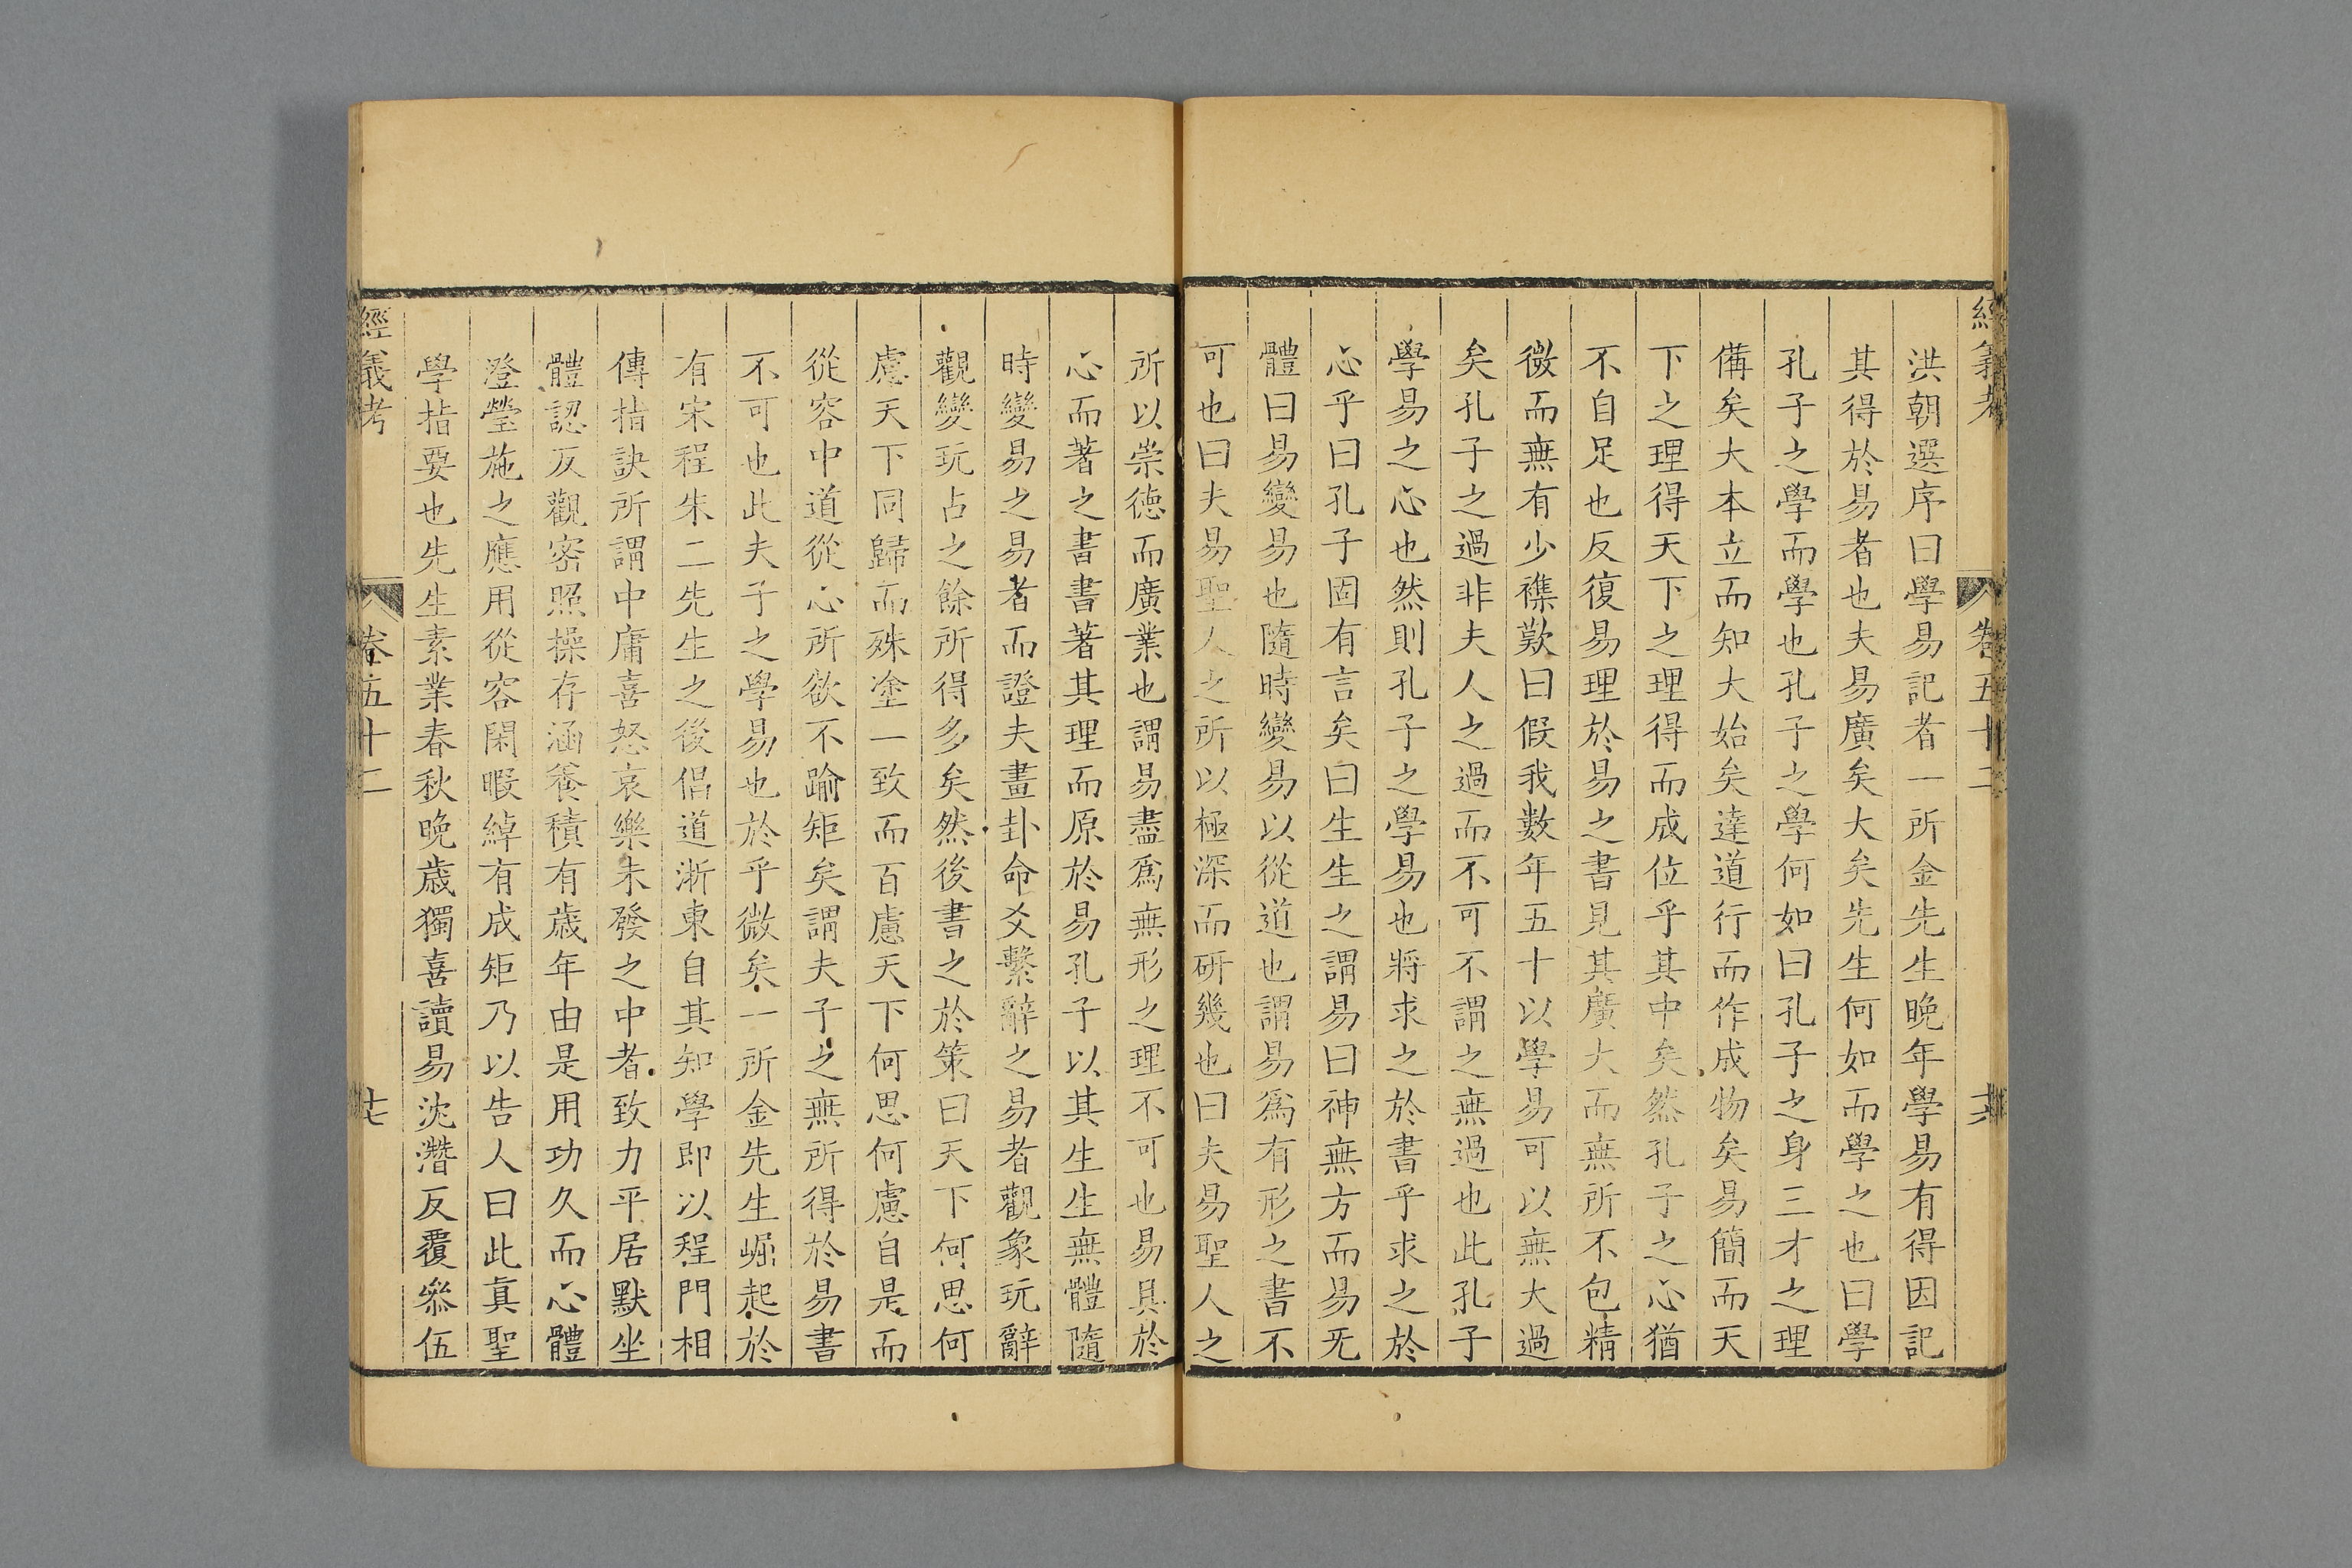 經義考 卷五十二 六
洪朝選序曰學易記者一所金先生晚年學易有得因記
其得於易者也夫易廣矣大矣先生何如而學之也曰學
孔子之學而學也孔子之學何如曰孔子之身三才之理
備矣大本立而知大始矣達道行而作成物矣易簡而天
下之理得天下之理得而成位乎其中矣然孔子之心猶
不自足也反復易理於易之書見其廣大而無所不包精
微而無有少襍歎曰假我數年五十以學易可以無大過
矣孔子之過非夫人之過而不可不謂之無過也此孔子
學易之心也然則孔子之學易也將求之於書乎求之於
心乎曰孔子固有言矣曰生生之謂易曰神無方而易无
體曰易變易也隨時變易以從道也謂易爲有形之書不
可也曰夫易聖人之所以極深而研幾也曰夫易聖人之
所以崇德而廣業也謂易盡爲無形之理不可也易具於
心而著之書書著其理而原於易孔子以其生生無體隨
時變易之易者而證夫畫卦命爻繫辭之易者觀象玩辭
觀變玩占之餘所得多矣然後書之於策曰天下何思何
慮天下同歸而殊塗一致而百慮天下何思何慮自是而
從容中道從心所欲不踰矩矣謂夫子之無所得於易書
不可也此夫子之學易也於乎微矣一所金先生崛起於
有宋程朱二先生之後倡道浙東自其知學即以程門相
傳指訣所謂中庸喜怒哀樂未發之中者致力平居默坐
體認反觀密照操存涵養積有歲年由是用功久而心體
澄瑩施之應用從容閑暇綽有成矩乃以告人曰此真聖
學指要也先生素業春秋晚歲獨喜讀易沈潛反覆參伍
經義考 卷五十二 七